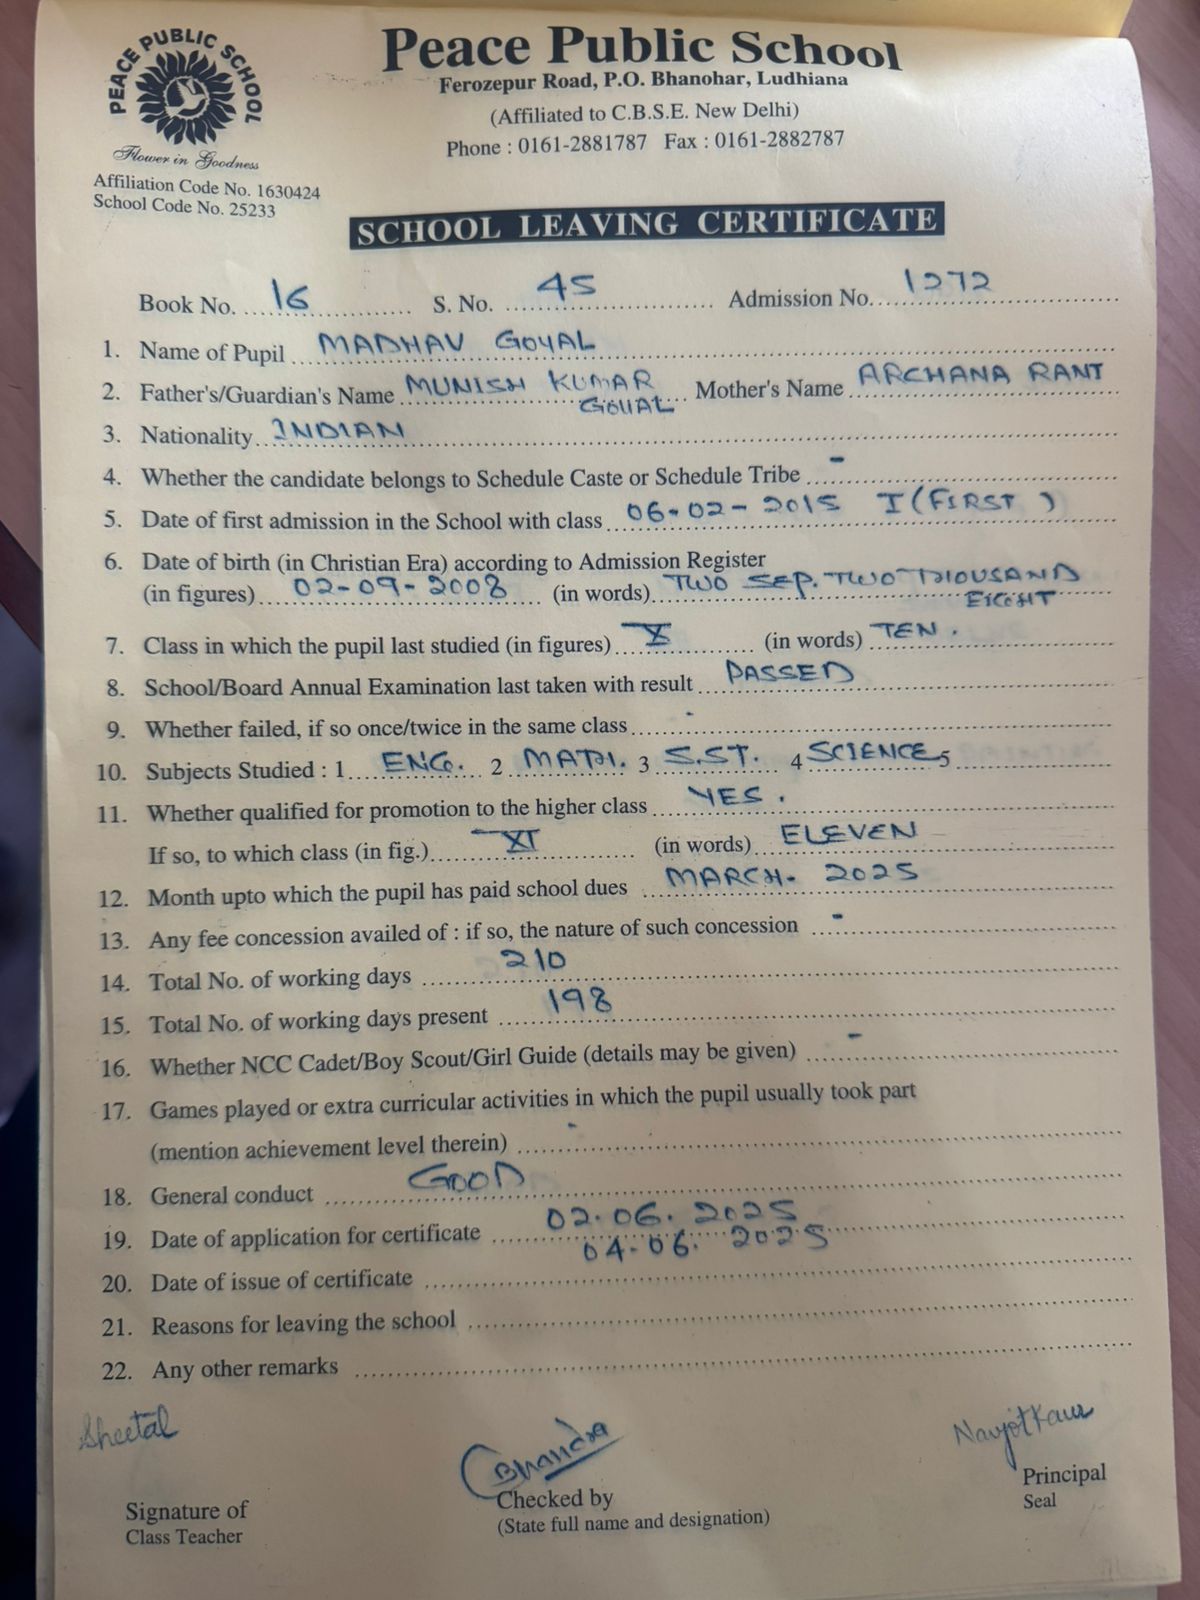 PEACE PUBLIC SCHOOL
Flower in Goodness
Affiliation Code No. 1630424
School Code No. 25233
Peace Public School
Ferozepur Road, P.O. Bhanohar, Ludhiana
(Affiliated to C.B.S.E. New Delhi)
Phone : 0161-2881787 Fax : 0161-2882787
SCHOOL LEAVING CERTIFICATE
Book No. 16 S. No. 45 Admission No. 1272
1. Name of Pupil MADHAV GOYAL
2. Father's/Guardian's Name MUNISH KUMAR GOYAL Mother's Name ARCHANA RANI
3. Nationality INDIAN
4. Whether the candidate belongs to Schedule Caste or Schedule Tribe -
5. Date of first admission in the School with class 06-02-2015 I (FIRST)
6. Date of birth (in Christian Era) according to Admission Register
(in figures) 02-09-2008 (in words) TWO SEP. TWO THOUSAND EIGHT
7. Class in which the pupil last studied (in figures) X (in words) TEN.
8. School/Board Annual Examination last taken with result PASSED
9. Whether failed, if so once/twice in the same class -
10. Subjects Studied : 1 ENG. 2 MATH. 3 S.ST. 4 SCIENCE 5
11. Whether qualified for promotion to the higher class YES.
If so, to which class (in fig.) XI (in words) ELEVEN
12. Month upto which the pupil has paid school dues MARCH- 2025
13. Any fee concession availed of : if so, the nature of such concession -
14. Total No. of working days 210
15. Total No. of working days present 198
16. Whether NCC Cadet/Boy Scout/Girl Guide (details may be given) -
17. Games played or extra curricular activities in which the pupil usually took part
(mention achievement level therein) -
18. General conduct GOOD
19. Date of application for certificate 02.06.2025
04-06. 2025
20. Date of issue of certificate
21. Reasons for leaving the school
22. Any other remarks
Sheetal
Bhandra
Navjot Kaur
Signature of
Class Teacher
Checked by
(State full name and designation)
Principal
Seal